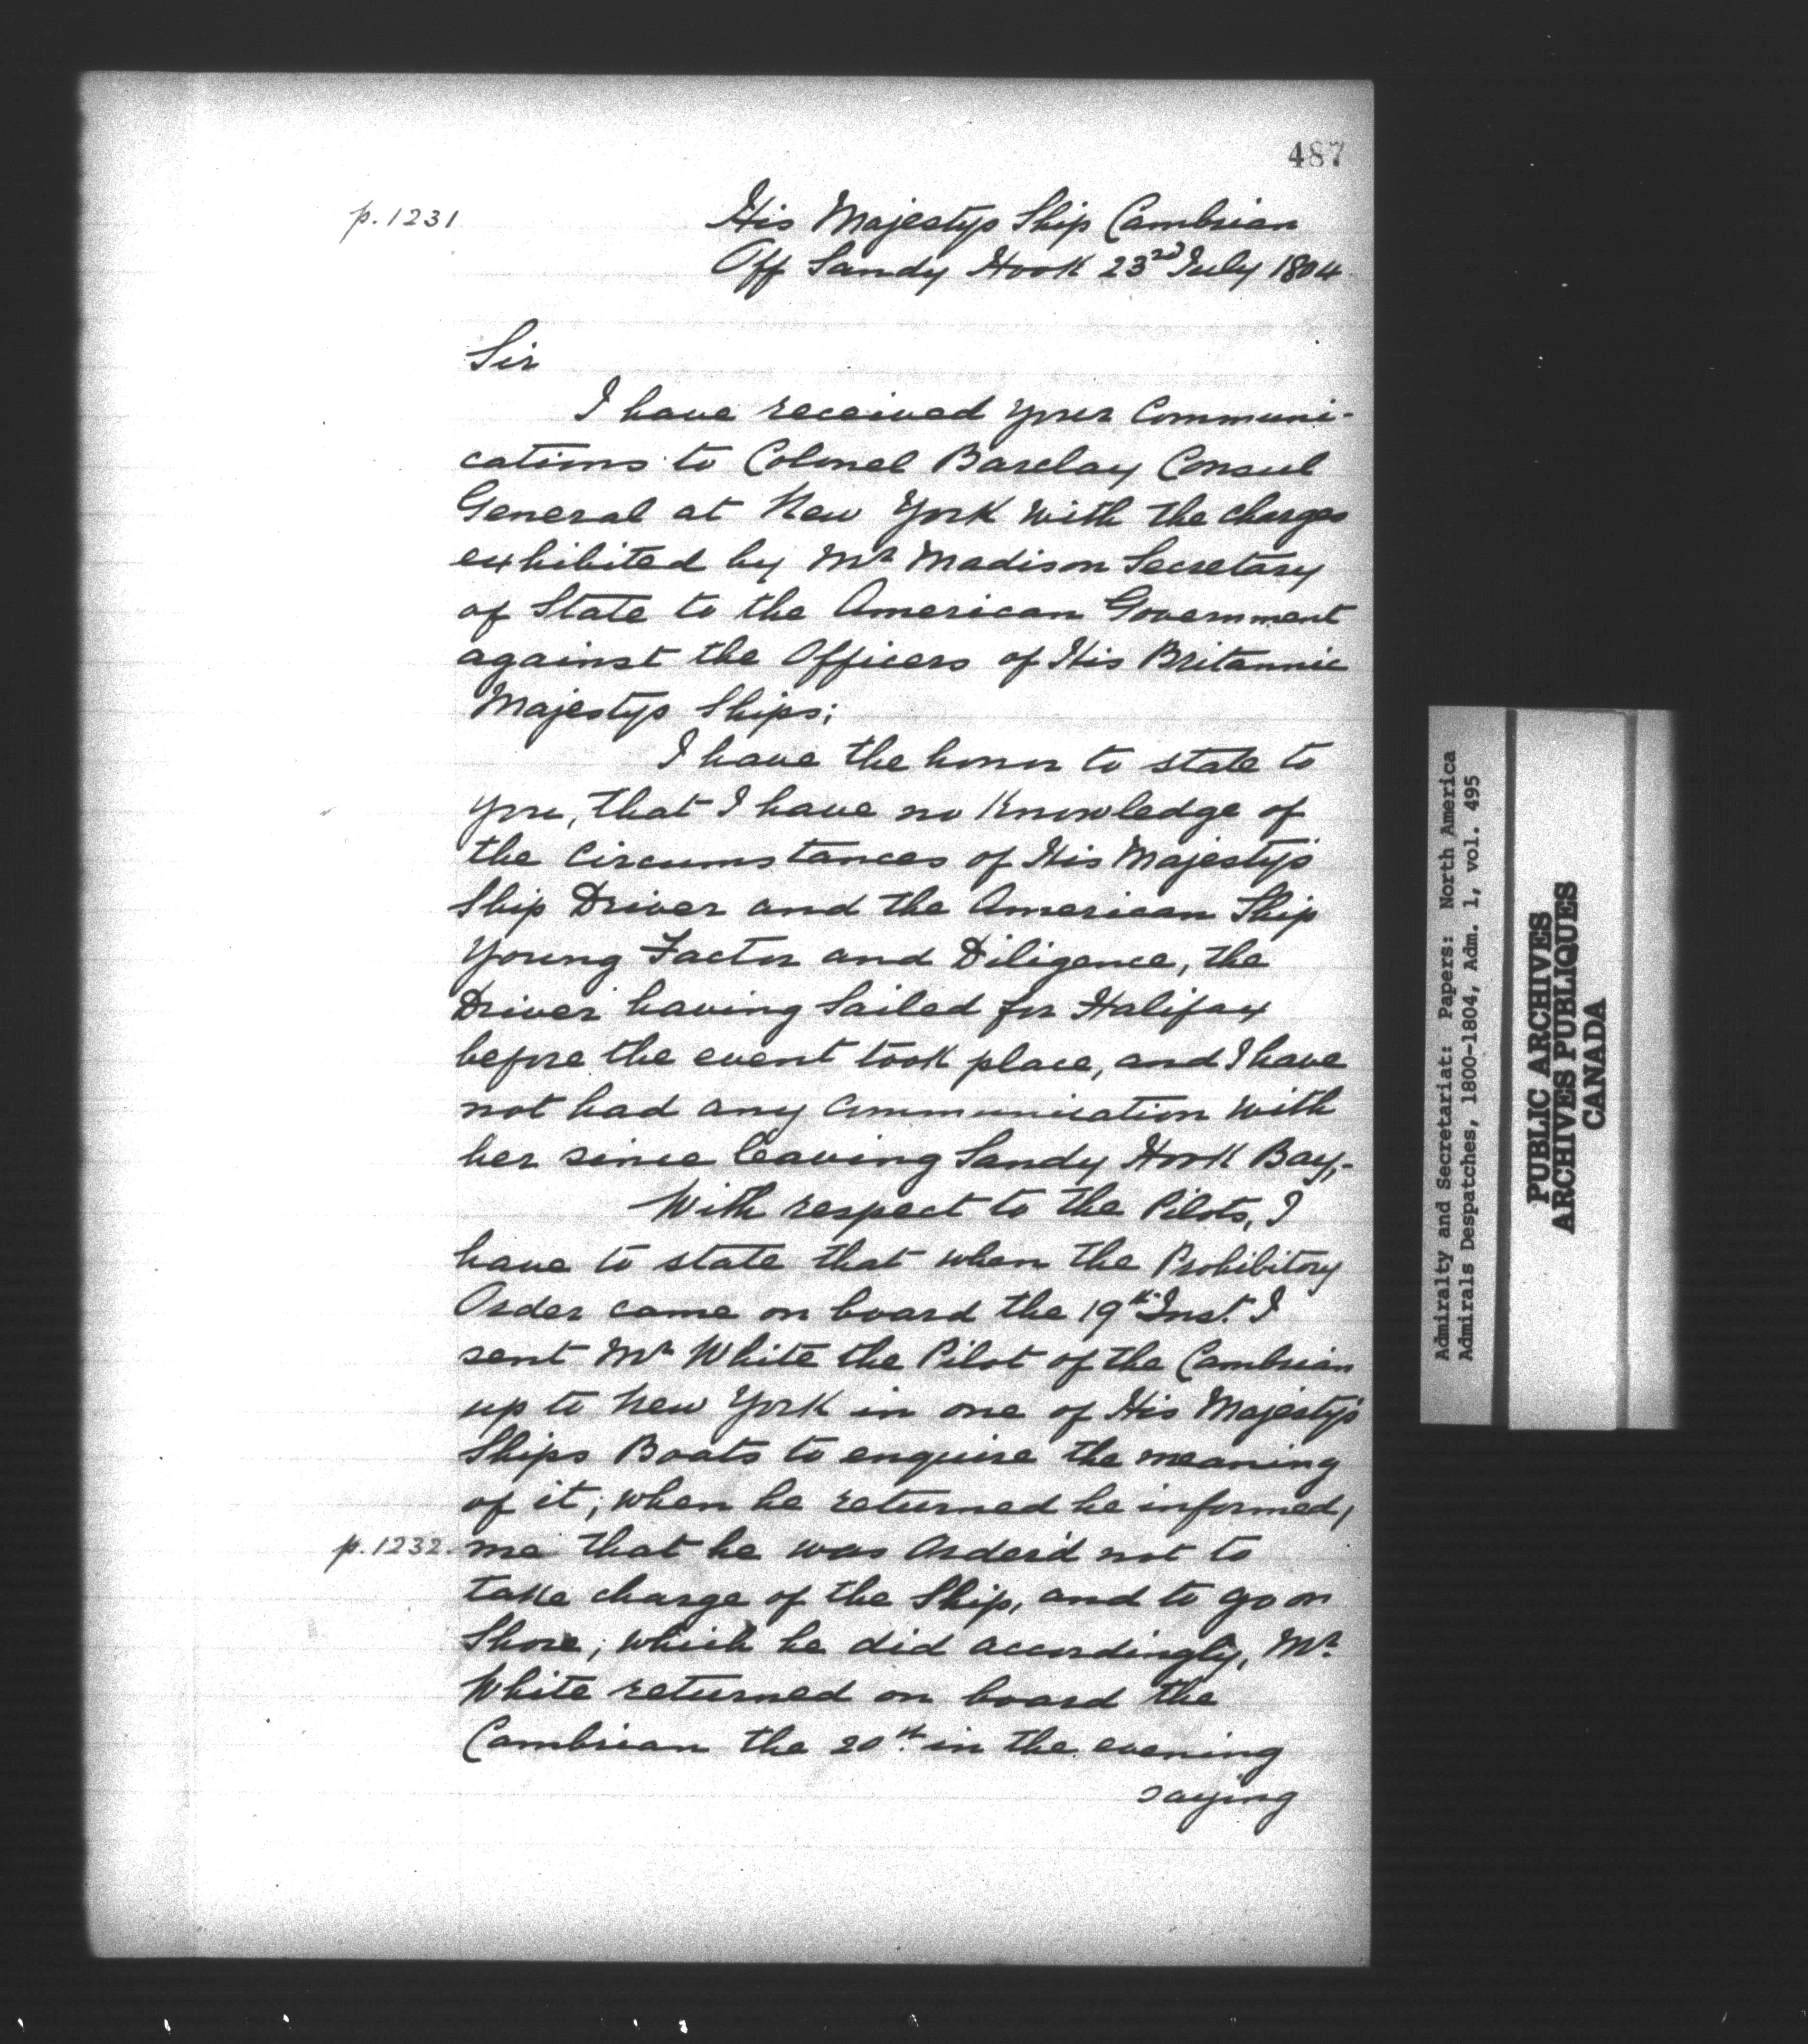 487
p. 1231
His Majestys Ship Cambrian
Off Sandy Hook 23rd July 1804
Sir
I have received your Communi-
cations to Colonel Barclay Consul
General at New York with the charges
exhibited by Mr Madison Secretary
of State to the American Government
against the Officers of His Britannic
Majestys Ships;
I have the honor to state to
you, that I have no Knowledge of
the Circumstances of His Majesty's
Ship Driver and the American Ship
Young Factor and Diligence, the
Driver having Sailed for Halifax
before the event took place, and I have
not had any Communication with
her since leaving Sandy Hook Bay,-
With respect to the Pilots, I
have to state that when the Prohibitory
Order came on board the 19th Inst. I
sent Mr White the Pilot of the Cambrian
up to New York in one of His Majesty's
Ships Boats to enquire the meaning
of it; when he returned he informed,
p. 1232. me that he was Order'd not to
take charge of the Ship, and to go on
Shore, which he did accordingly, Mr.
White returned on board the
Cambrian the 20th in the evening
saying
Admiralty and Secretariat: Papers: North America
Admirals Despatches, 1800-1804, Adm. 1, vol. 495
PUBLIC ARCHIVES
ARCHIVES PUBLIQUES
CANADA